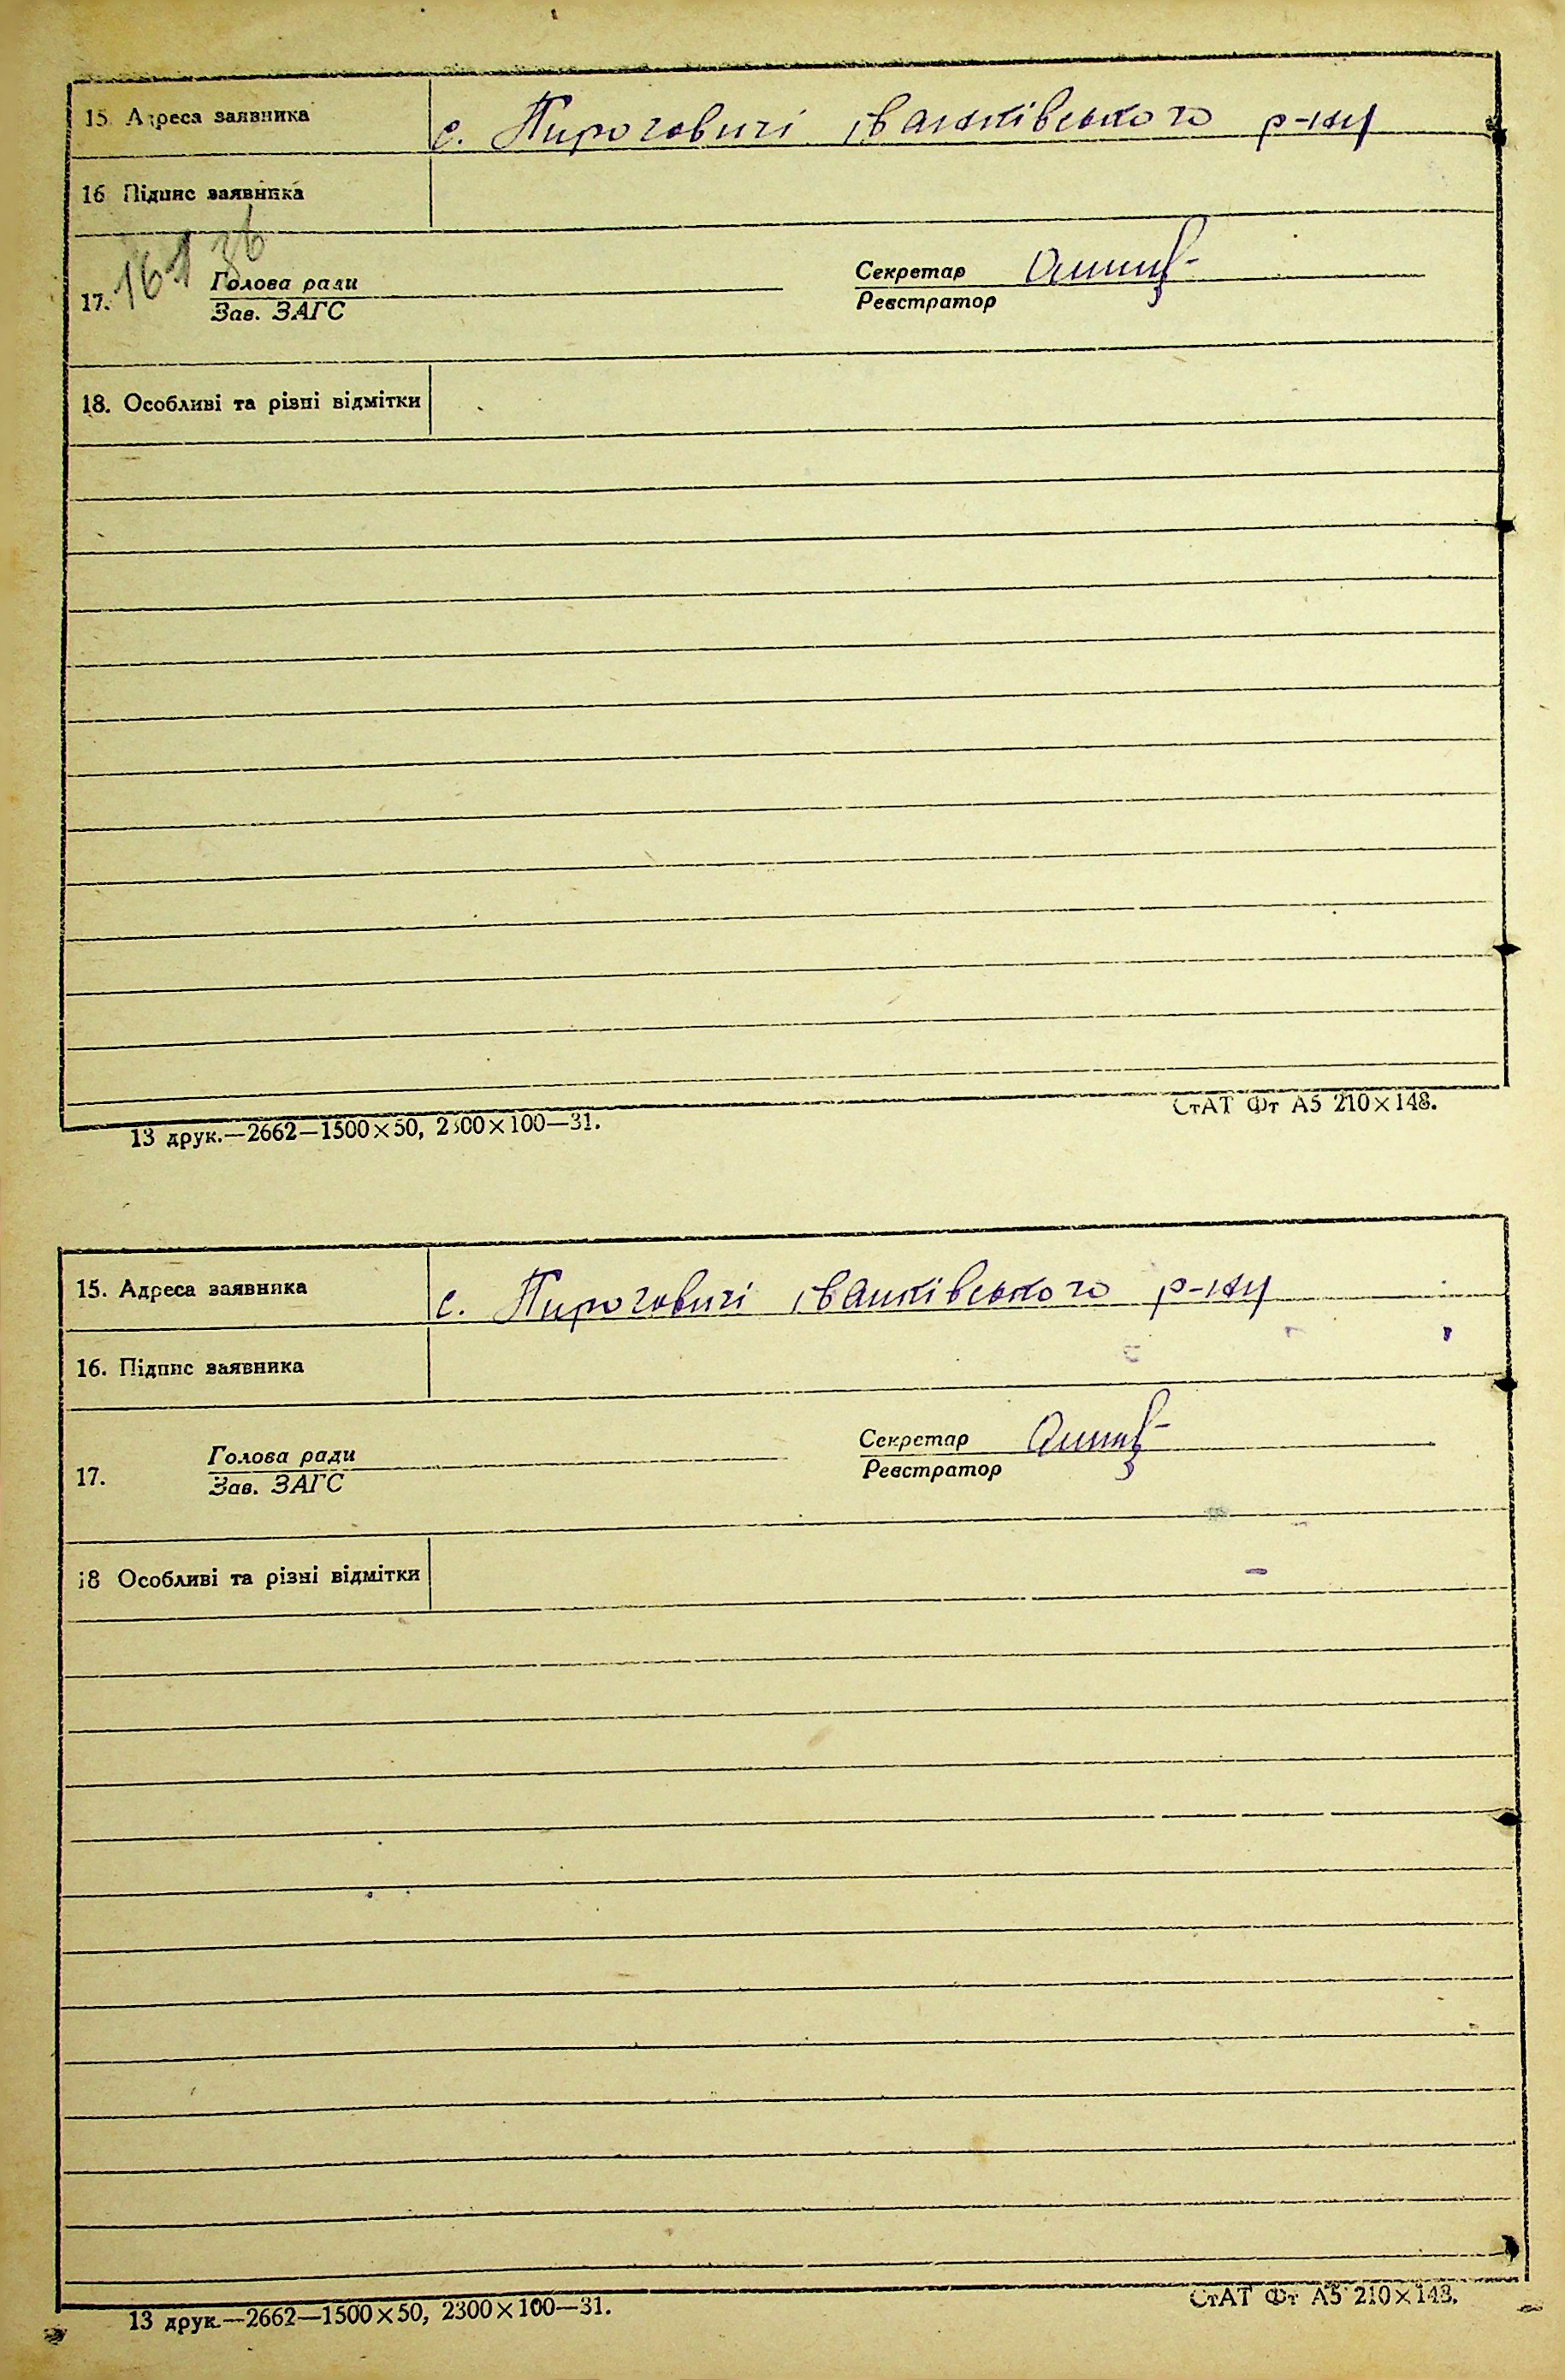 15. Адреса заявника с. Пироговичі іванківського р-ну
16 Підпис заявника
161 36
17. Голова ради Секретар
Зав. ЗАГС Реєстратор
18. Особливі та різні відмітки
СтАТ Фт А5 210×148.
13 друк.—2662—1500×50, 2300×100—31.
15. Адреса заявника с. Пироговичі іванківського р-ну
16. Підпис заявника
17. Голова ради Секретар
Зав. ЗАГС Реєстратор
18 Особливі та різні відмітки
СтАТ Фт А5 210×148.
13 друк.—2662—1500×50, 2300×100—31.